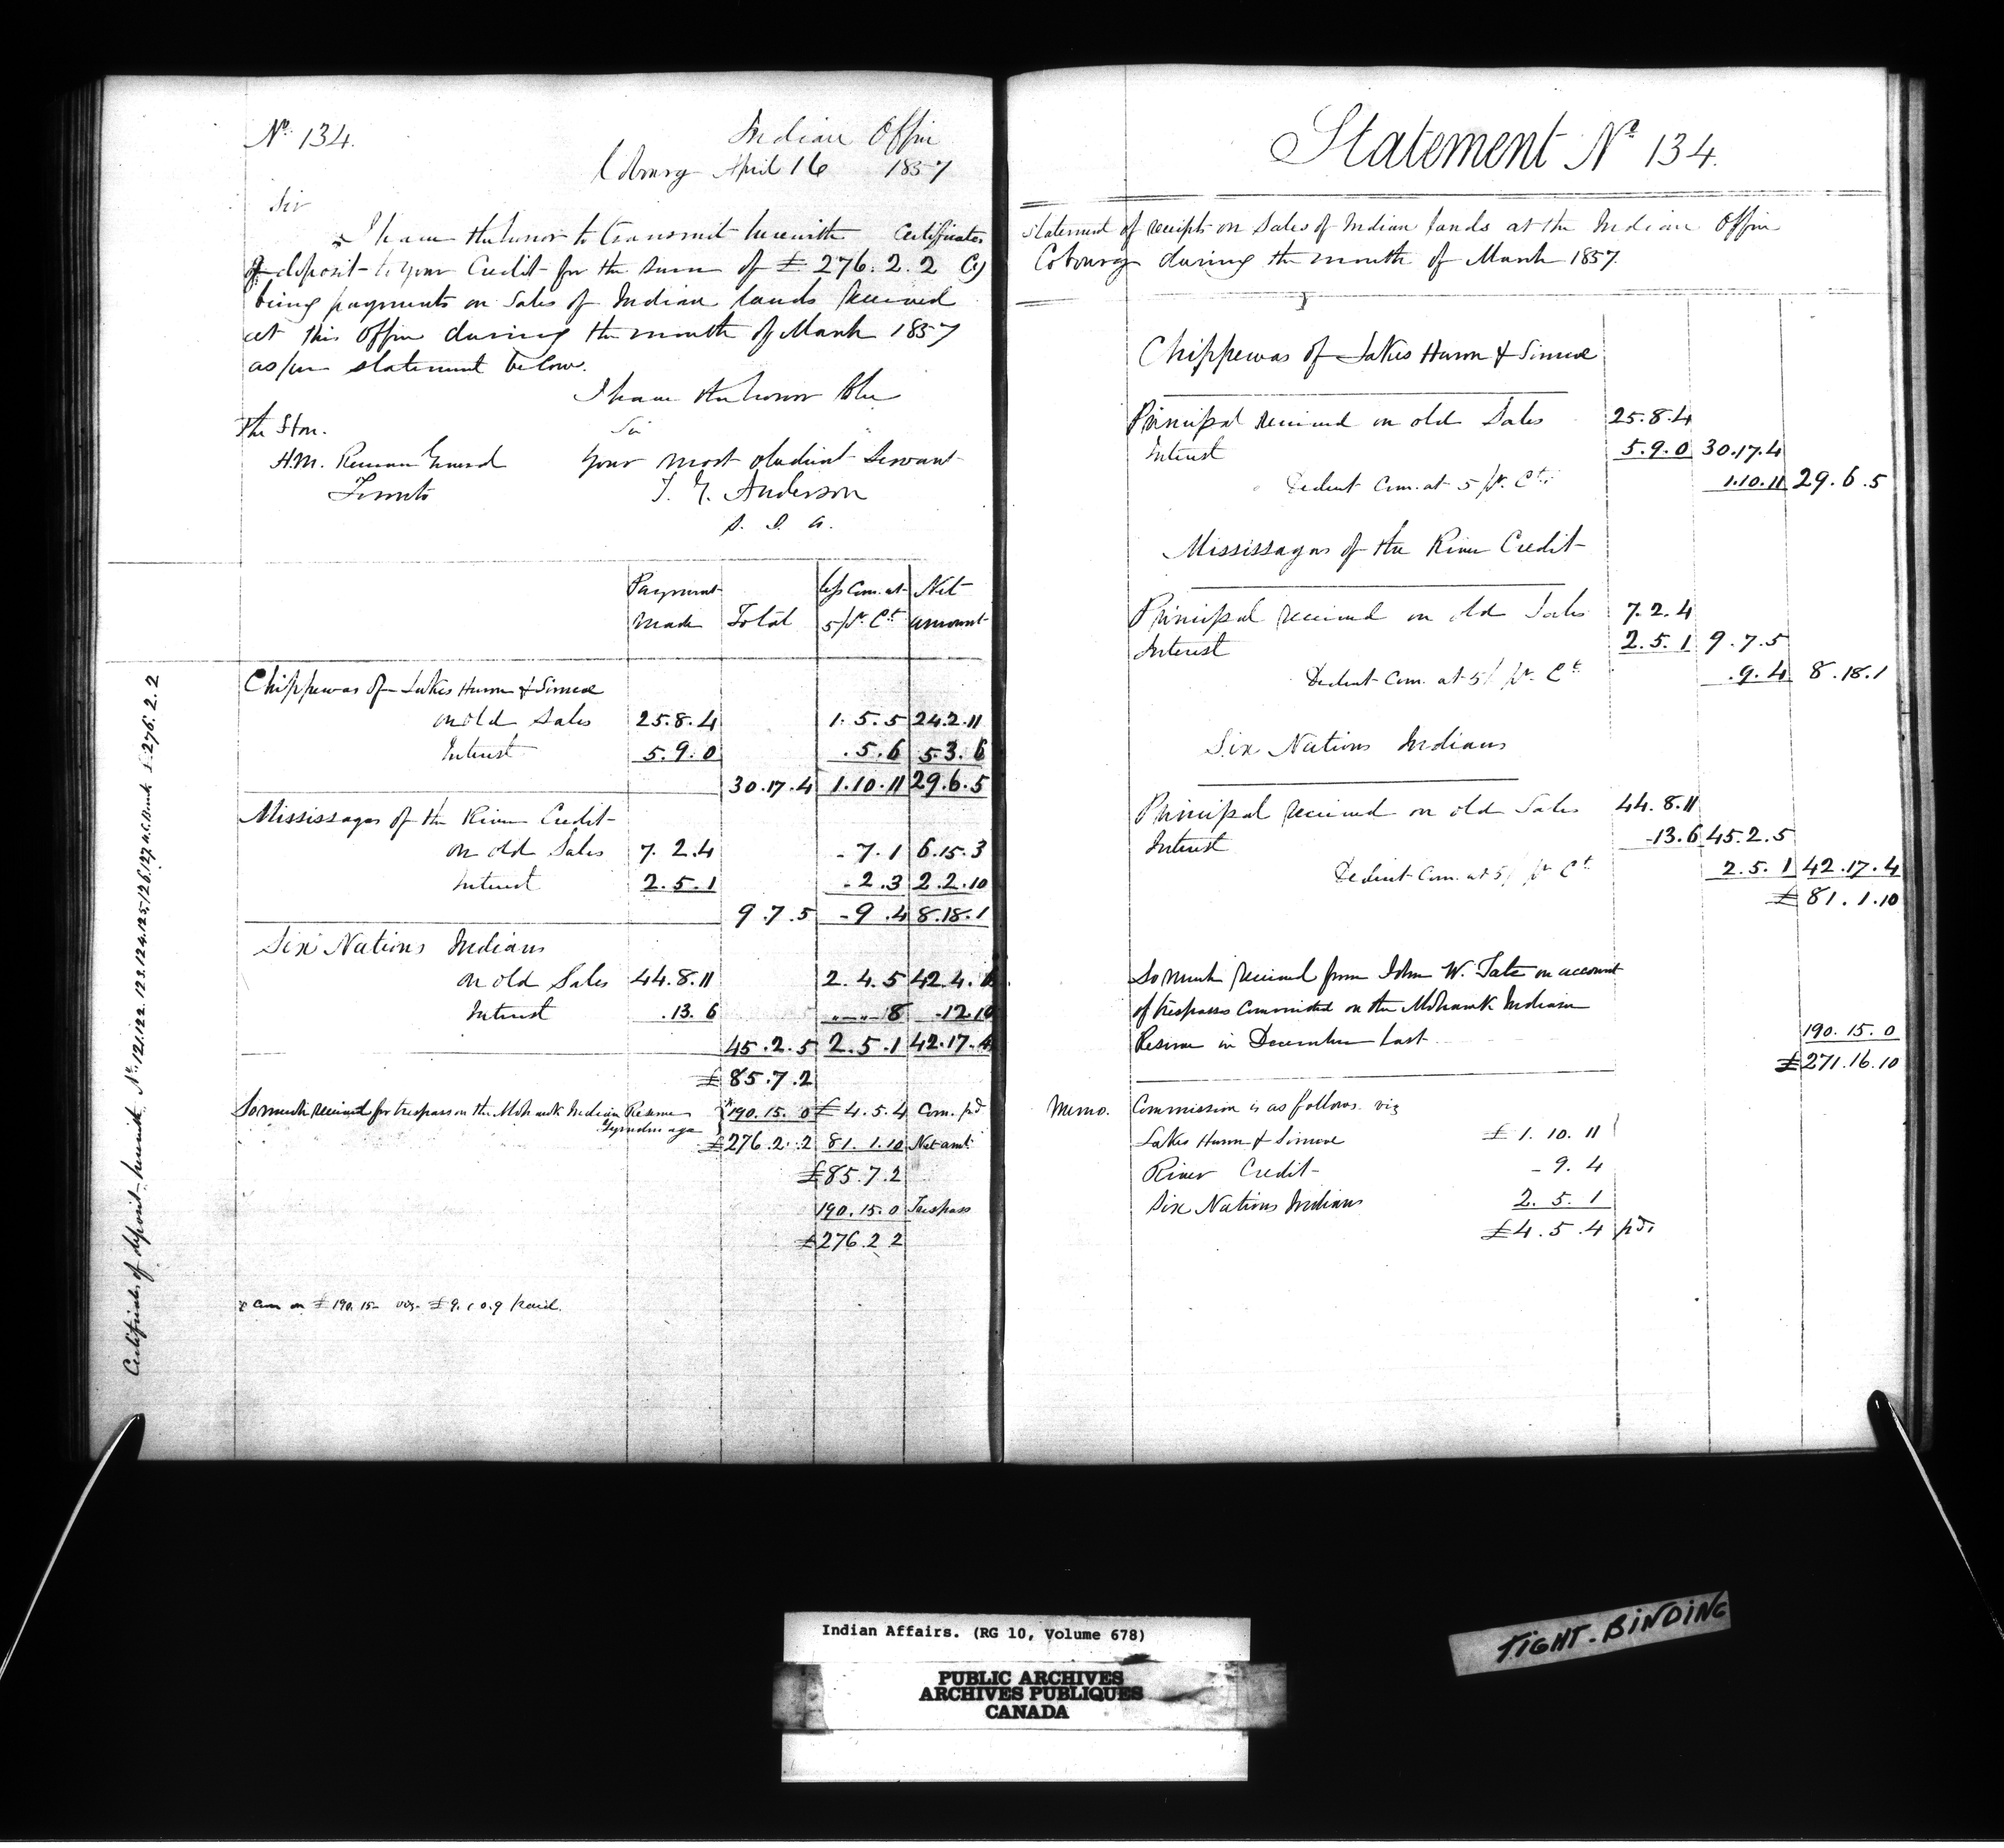 No. 134.
Indian Office
Cobourg April 16 1857
Sir
I have the honor to transmit herewith Certificates
of deposit to your Credit for the sum of £276.2.2 Cy
being payments on Sales of Indian lands received
at this Office during the month of March 1857
as per statement below.
I have the honor to be
Sir
The Hon.
H.M. Receiver General
Toronto
Your most obedient Servant
T. G. Anderson
S. I. A.
Payment made
Total
less Com. at 5 pr Ct
Net amount
Chippewas of Lakes Huron & Simcoe
on old Sales 25.8.4 1.5.5 24.2.11
Interest 5.9.0 .5.6 5.3.6
30.17.4 1.10.11 29.6.5
Mississagas of the River Credit
on old Sales 7.2.4 -7.1 6.15.3
Interest 2.5.1 -2.3 2.2.10
9.7.5 -9.4 8.18.1
Six Nations Indians
on old Sales 44.8.11 2.4.5 42.4.6
Interest .13.6 8 -12.10
45.2.5 2.5.1 42.17.4
£85.7.2
So much received for trespass on the Mohawk Indian Reserve
Tyendinaga
x190.15.0 £4.5.4 Com. pd
£276.2.2 81.1.10 Net amt
£85.7.2
190.15.0 Trespass
£276.2.2
x Com on £190.15- viz. £9.10.9 paid.
Certificates of deposit herewith Nos. 121.122.123.124.125/126/127 U.C. Bank £276.2.2
Statement No. 134.
Statement of receipts on Sales of Indian Lands at the Indian Office
Cobourg during the month of March 1857.
Chippewas of Lakes Huron & Simcoe
Principal received on old Sales 25.8.4
Interest 5.9.0 30.17.4
Deduct Com. at 5 pr. Ct. 1.10.11 29.6.5
Mississagas of the River Credit
Principal received on old Sales 7.2.4
Interest 2.5.1 9.7.5
Deduct Com. at 5/ pr. Ct .9.4 8.18.1
Six Nations Indians
Principal received on old Sales 44.8.11
Interest -13.6 45.2.5
Deduct Com. at 5/ pr Ct 2.5.1 42.17.4
£81.1.10
So much received from John W. Tate on account
of trespasses Committed on the Mohawk Indian
Reserve in December last 190.15.0
£271.16.10
Memo. Commission is as follows viz
Lakes Huron & Simcoe £1.10.11
River Credit -9.4
Six Nations Indians 2.5.1
£4.5.4 pd.
Indian Affairs. (RG 10, Volume 678)
PUBLIC ARCHIVES
ARCHIVES PUBLIQUES
CANADA
TIGHT-BINDING